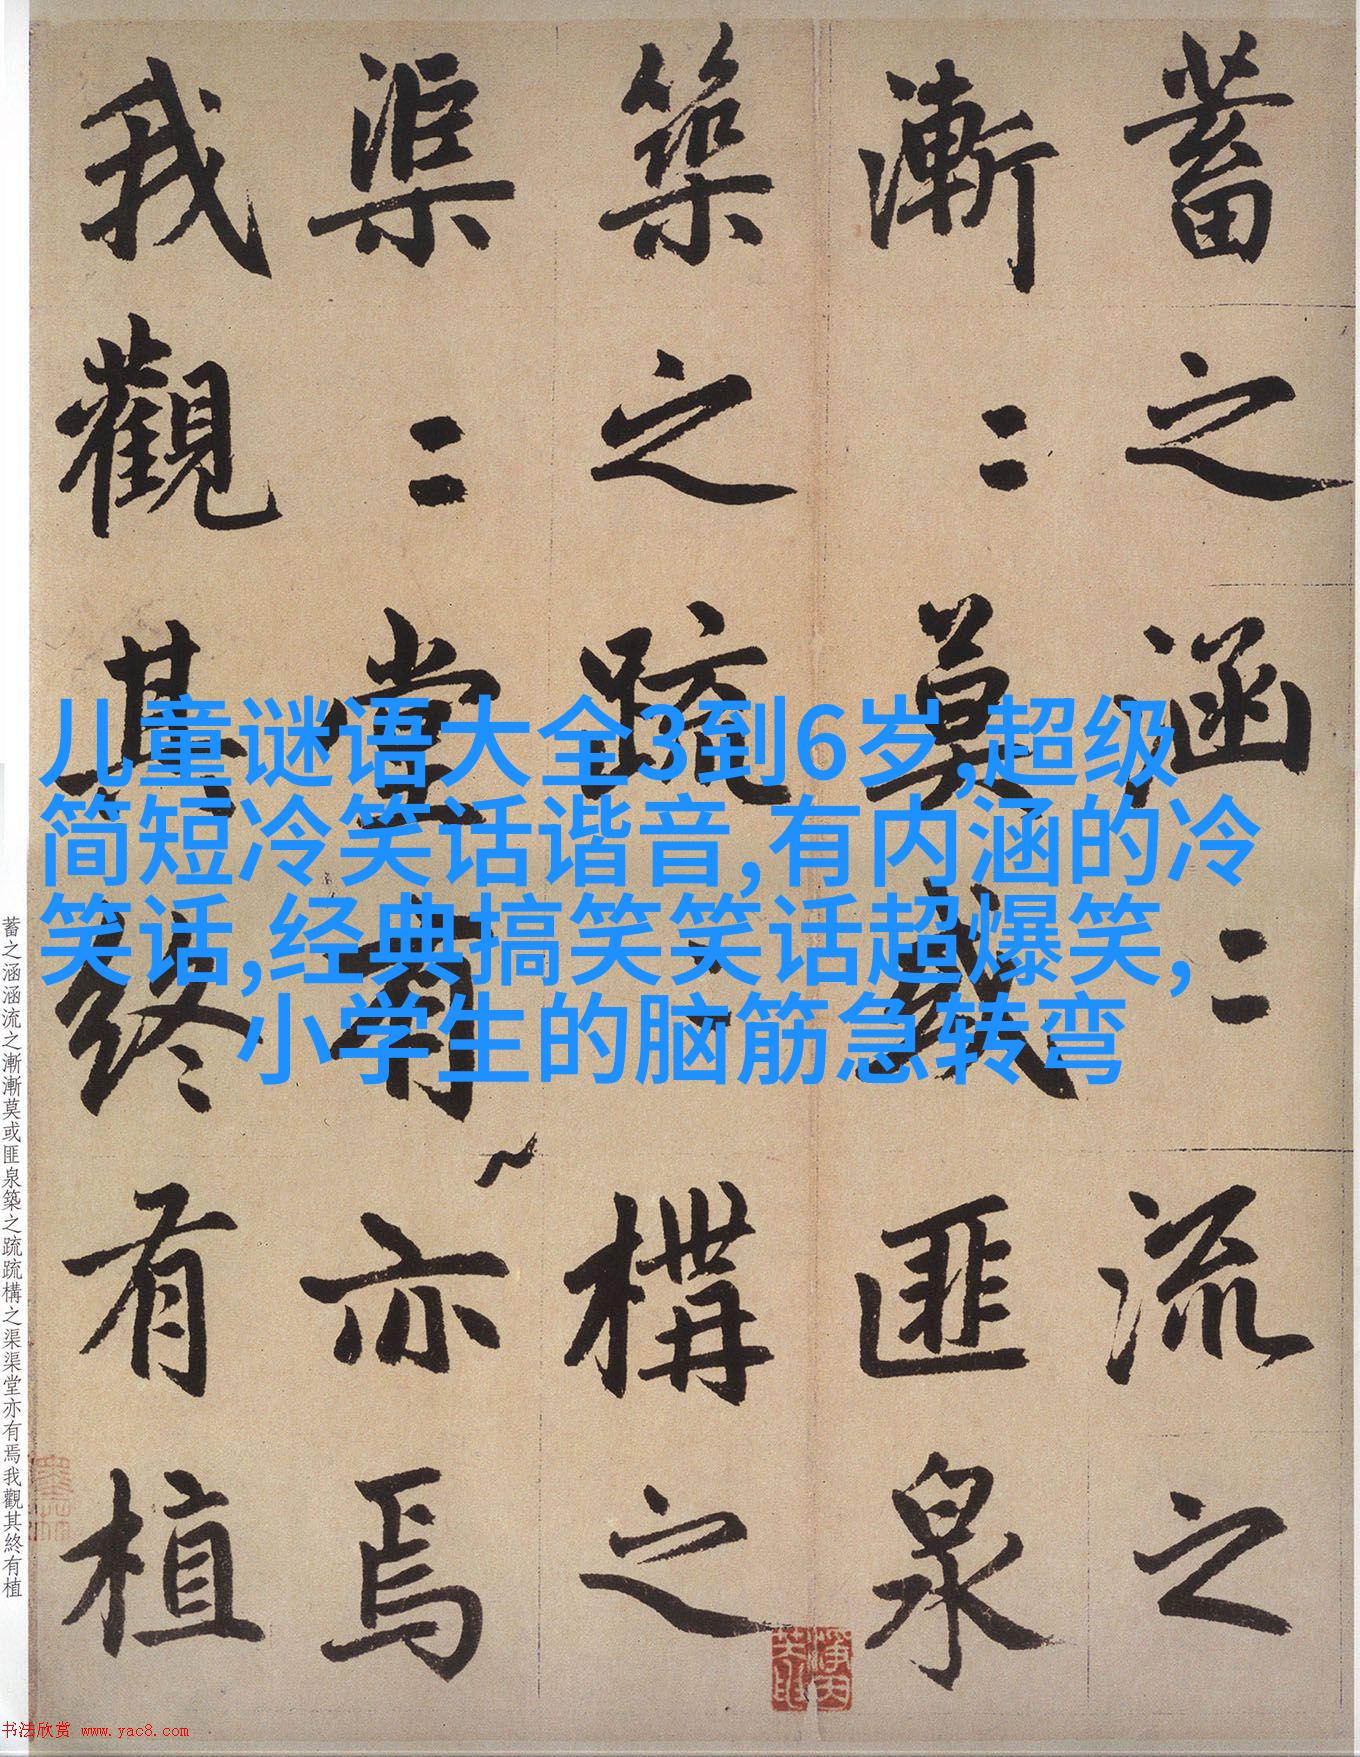 蓄之涵〻流之
漸〻莫或匪泉
築之疏〻構之
渠〻堂有亦焉
我觀其終有植
儿童谜语大全3到6岁,超级
简短冷笑话谐音,有内涵的冷
笑话,经典搞笑笑话超爆笑,
小学生的脑筋急转弯
蓄之涵涵流之漸漸莫或匪泉築之疏疏構之渠渠堂亦有焉我觀其終有植
书法欣赏 www.yac8.com